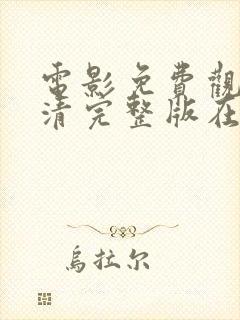 電影免費觀
清完整版在
烏拉尔